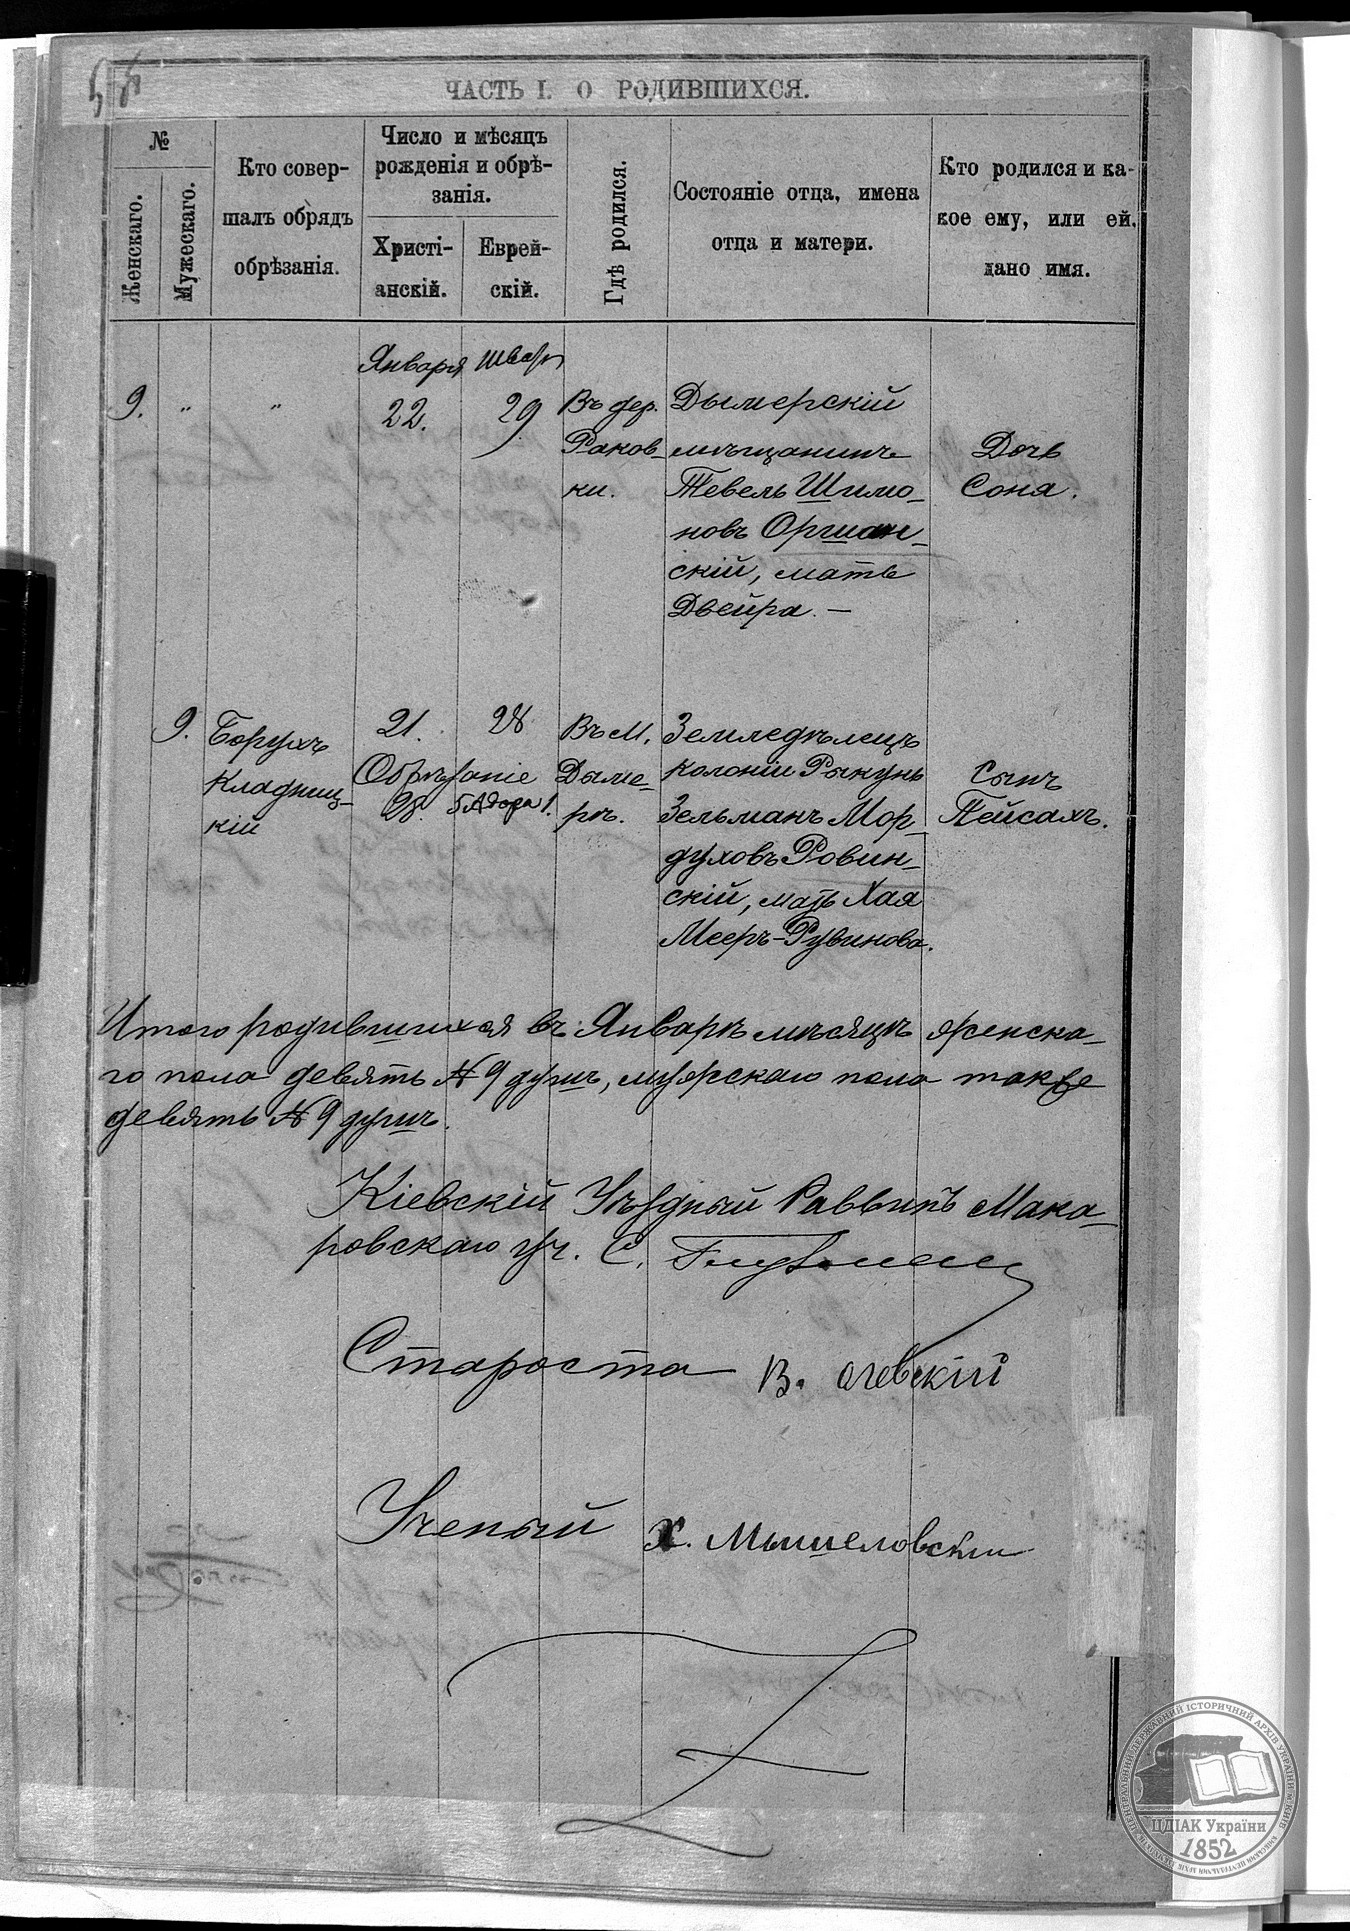 ЧАСТЬ I. О РОДИВШИХСЯ.
№
Женскаго.
Мужескаго.
Кто совер-
шалъ обрядъ
обрѣзанія.
Число и мѣсяцъ
рожденія и обрѣ-
занія.
Христі-
анскій.
Еврей-
скій.
Гдѣ родился.
Состояніе отца, имена
отца и матери.
Кто родился и ка-
кое ему, или ей,
дано имя.
Января
9. " "
22.
29
Въ дер.
Раков-
ки.
Дымерскій
мѣщанинъ
Тевель Шимо-
новъ Оршан-
скій, мать
Двейра. —
Дочь
Соня.
9.
Борухъ
Кладниц-
кій
21.
28
Обрѣзаніе
28. 5 Адора 1.
Въ М.
Дыме-
рѣ.
Земледѣлецъ
колоніи Рыкунь
Зельманъ Мор-
духовъ Ровин-
скій, мать Хая
Мееръ-Рувинова.
Сынъ
Пейсахъ.
Итого родившихся въ Январѣ мѣсяцѣ женска-
го пола девять № 9 душъ, мужскаго пола также
девять № 9 душъ.
Кіевскій Уѣздный Раввинъ Мака-
ровскаго уч. С.
Староста В.
Ученый Х. Мышеловскій
ЦЕНТРАЛЬНИЙ ДЕРЖАВНИЙ ІСТОРИЧНИЙ АРХІВ УКРАЇНИ, М.КИЇВ
ЦДІАК України
1852